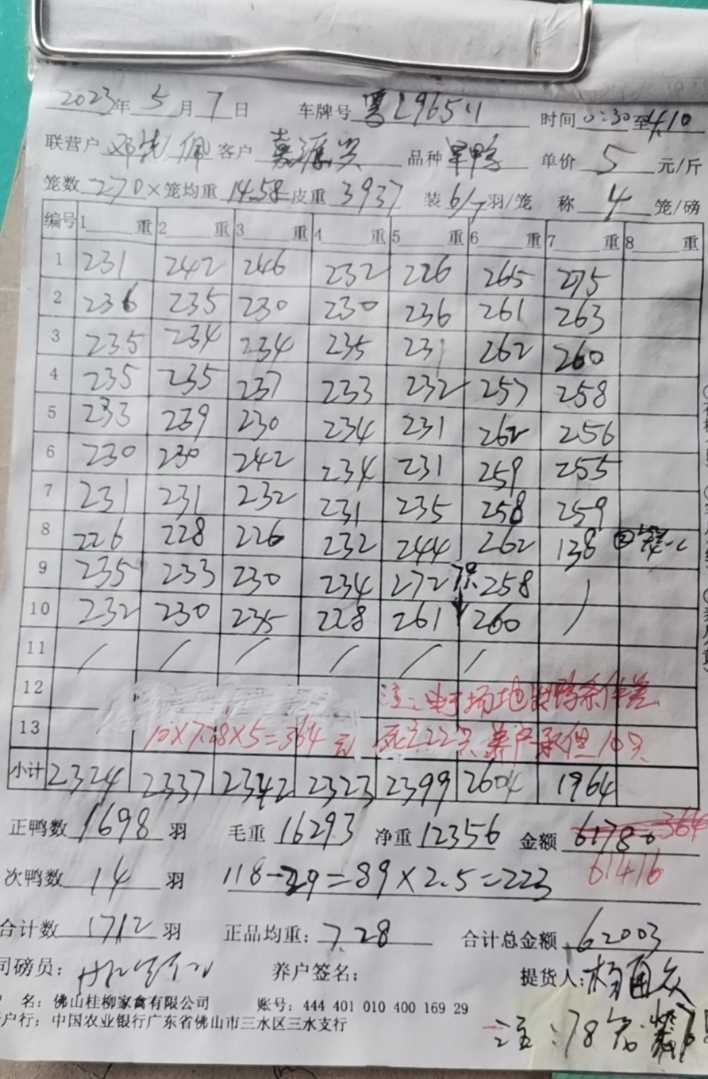 2023年 5 月 7 日 车牌号 粤 时间 0:30至4.10
联营户 邓 佩 客户 嘉源 品种 旱鸭 单价 5 元/斤
笼数 270 × 笼均重 14.58 皮重 3937 装 6/7 羽/笼 称 4 笼/磅
编号 1 重 2 重 3 重 4 重 5 重 6 重 7 重 8 重
1 231 242 246 232 226 265 275
2 236 235 230 230 236 261 263
3 235 234 234 235 231 262 260
4 235 235 237 233 232 257 258
5 233 239 230 234 231 262 256
6 230 230 242 234 231 259 255
7 231 231 232 231 235 258 259
8 226 228 226 232 244 262 138
9 235 233 230 234 272 258 /
10 232 230 235 228 261 260 /
11 / / / / / /
12 注:由于场地 条件差
13 10×7.28×5=364元 死亡22只 养户承担10只
小计 2324 2337 2342 2323 2399 2604 1964
正鸭数 1698 羽 毛重 16293 净重 12356 金额 61780 364
61416
次鸭数 14 羽 118-29=89×2.5=223
合计数 1712 羽 正品均重: 7.28 合计总金额 62003
司磅员: 养户签名: 提货人:
名: 佛山桂柳家禽有限公司 账号: 444 401 010 400 169 29
户行: 中国农业银行广东省佛山市三水区三水支行
注:78